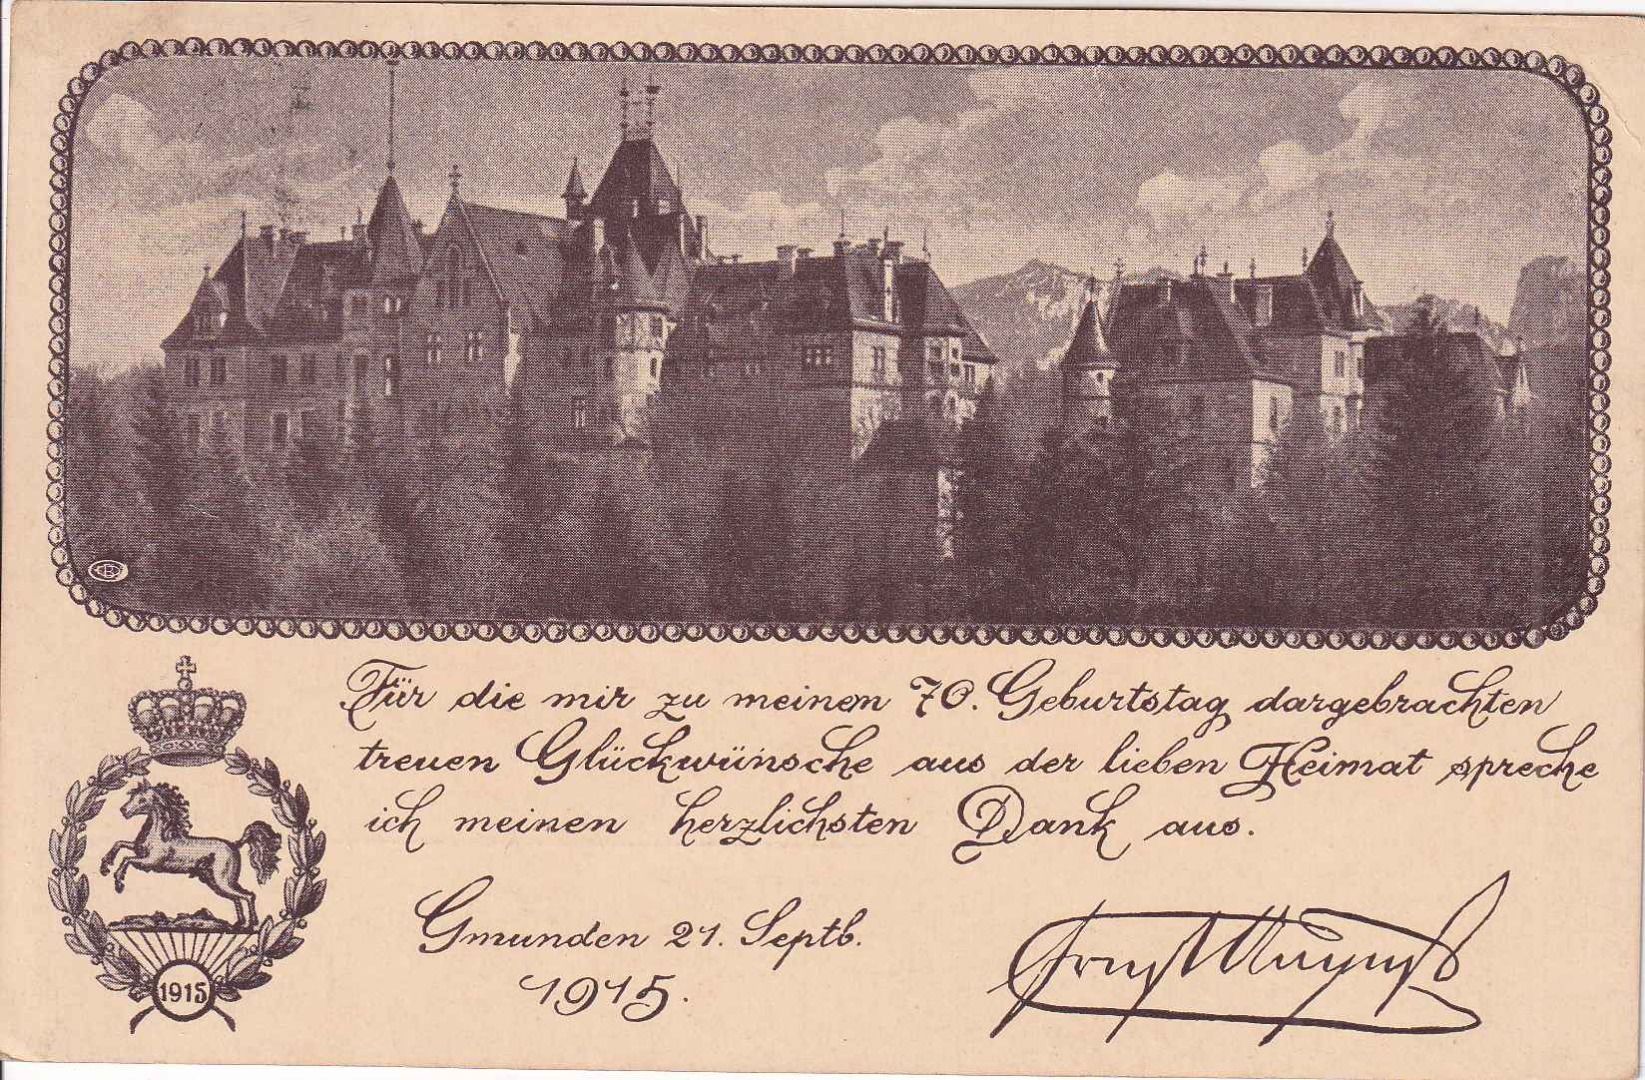 Für die mir zu meinem 70. Geburtstag dargebrachten
treuen Glückwünsche aus der lieben Heimat spreche
ich meinen herzlichsten Dank aus.
Gmunden 21. Septb.
1915.
Ernst August
1915